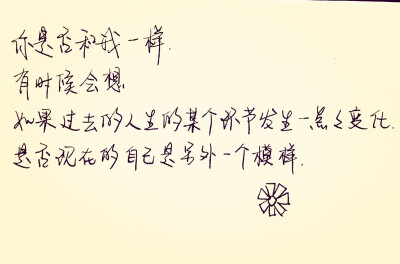 你是否和我一样.
有时候会想
如果过去的人生的某个环节发生一点点变化.
是否现在的自己是另外一个模样.